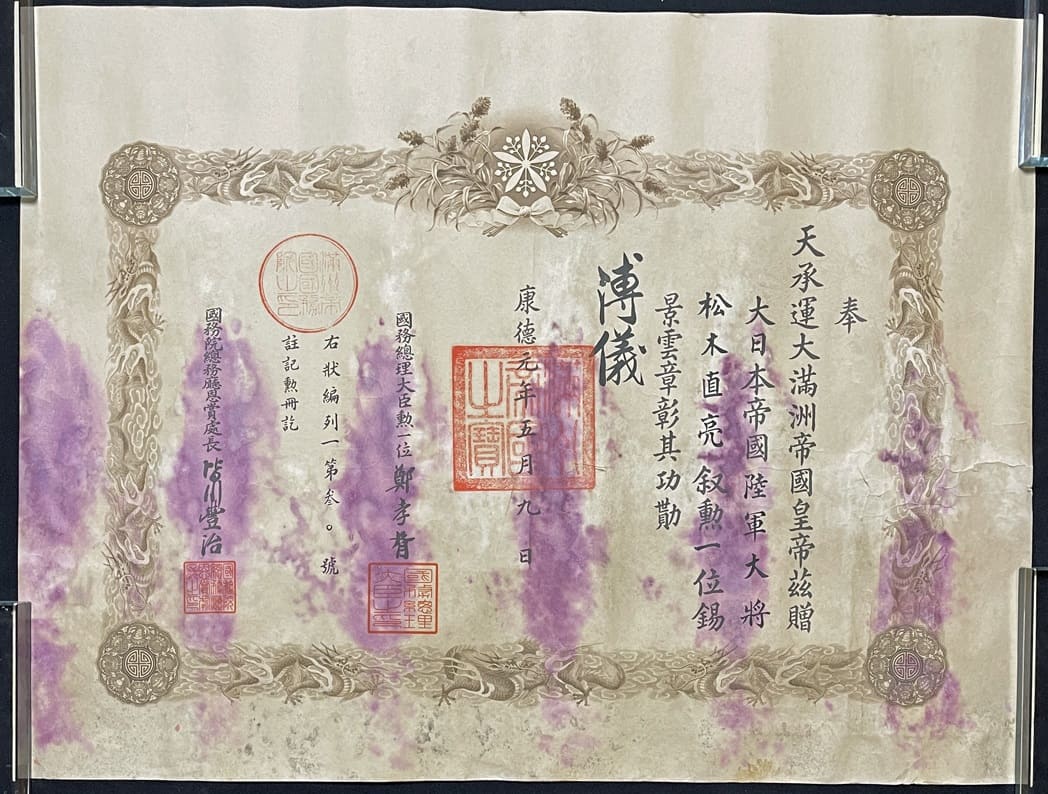 奉
天承運大滿洲帝國皇帝茲贈
大日本帝國陸軍大將
松木直亮叙勲一位錫
景雲章彰其功勛
溥儀
康德元年五月九日
國務總理大臣勲一位鄭孝胥
右狀編列一第叁〇號
註記勲冊訖
國務院總務廳恩賞處長皆川豐治
滿洲帝國國務院之印